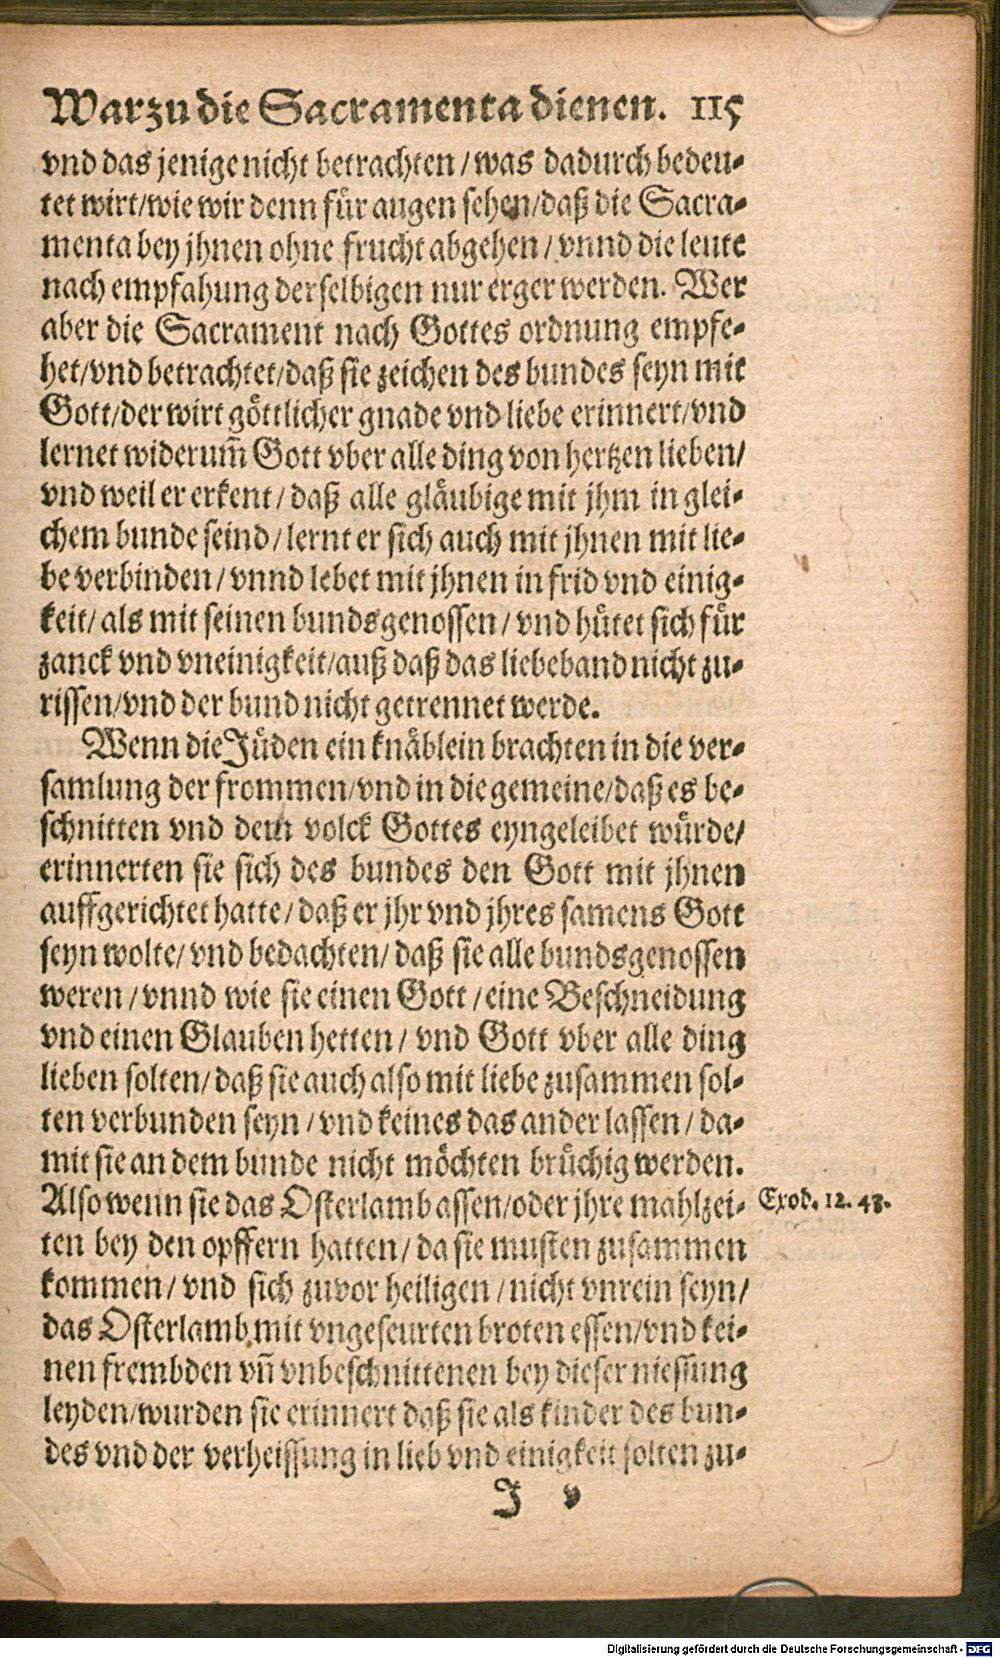 Warzu die Sacramenta dienen. 115
vnd das jenige nicht betrachten/ was dadurch bedeu-
tet wirt/wie wir denn für augen sehen/daß die Sacra-
menta bey jhnen ohne frucht abgehen/ vnnd die leute
nach empfahung derselbigen nur erger werden. Wer
aber die Sacrament nach Gottes ordnung empfe-
het/vnd betrachtet/daß sie zeichen des bundes seyn mit
Gott/der wirt göttlicher gnade vnd liebe erinnert/vnd
lernet widerum̃ Gott vber alle ding von hertzen lieben/
vnd weil er erkent/ daß alle gläubige mit jhm in glei-
chem bunde seind/ lernt er sich auch mit jhnen mit lie-
be verbinden/ vnnd lebet mit jhnen in frid vnd einig-
keit/ als mit seinen bundsgenossen/ vnd hütet sich für
zanck vnd vneinigkeit/auß daß das liebeband nicht zu-
rissen/vnd der bund nicht getrennet werde.
Wenn die Jüden ein knäblein brachten in die ver-
samlung der frommen/vnd in die gemeine/daß es be-
schnitten vnd dem volck Gottes eyngeleibet würde/
erinnerten sie sich des bundes den Gott mit jhnen
auffgerichtet hatte/ daß er jhr vnd jhres samens Gott
seyn wolte/ vnd bedachten/ daß sie alle bundsgenossen
weren/ vnnd wie sie einen Gott/ eine Beschneidung
vnd einen Glauben hetten/ vnd Gott vber alle ding
lieben solten/ daß sie auch also mit liebe zusammen sol-
ten verbunden seyn/ vnd keines das ander lassen/ da-
mit sie an dem bunde nicht möchten brüchig werden.
Also wenn sie das Osterlamb assen/oder jhre mahlzei- Exod. 12. 43.
ten bey den opffern hatten/ da sie musten zusammen
kommen/ vnd sich zuvor heiligen/ nicht vnrein seyn/
das Osterlamb mit vngeseurten broten essen/vnd kei-
nen frembden vñ vnbeschnittenen bey dieser niessung
leyden/wurden sie erinnert daß sie als kinder des bun-
des vnd der verheissung in lieb vnd einigkeit solten zu-
J v
Digitalisierung gefördert durch die Deutsche Forschungsgemeinschaft - DFG